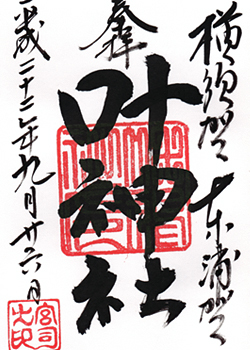 横須賀 東浦賀
奉拝
叶神社
平成二十二年九月廿六日
宮司之印